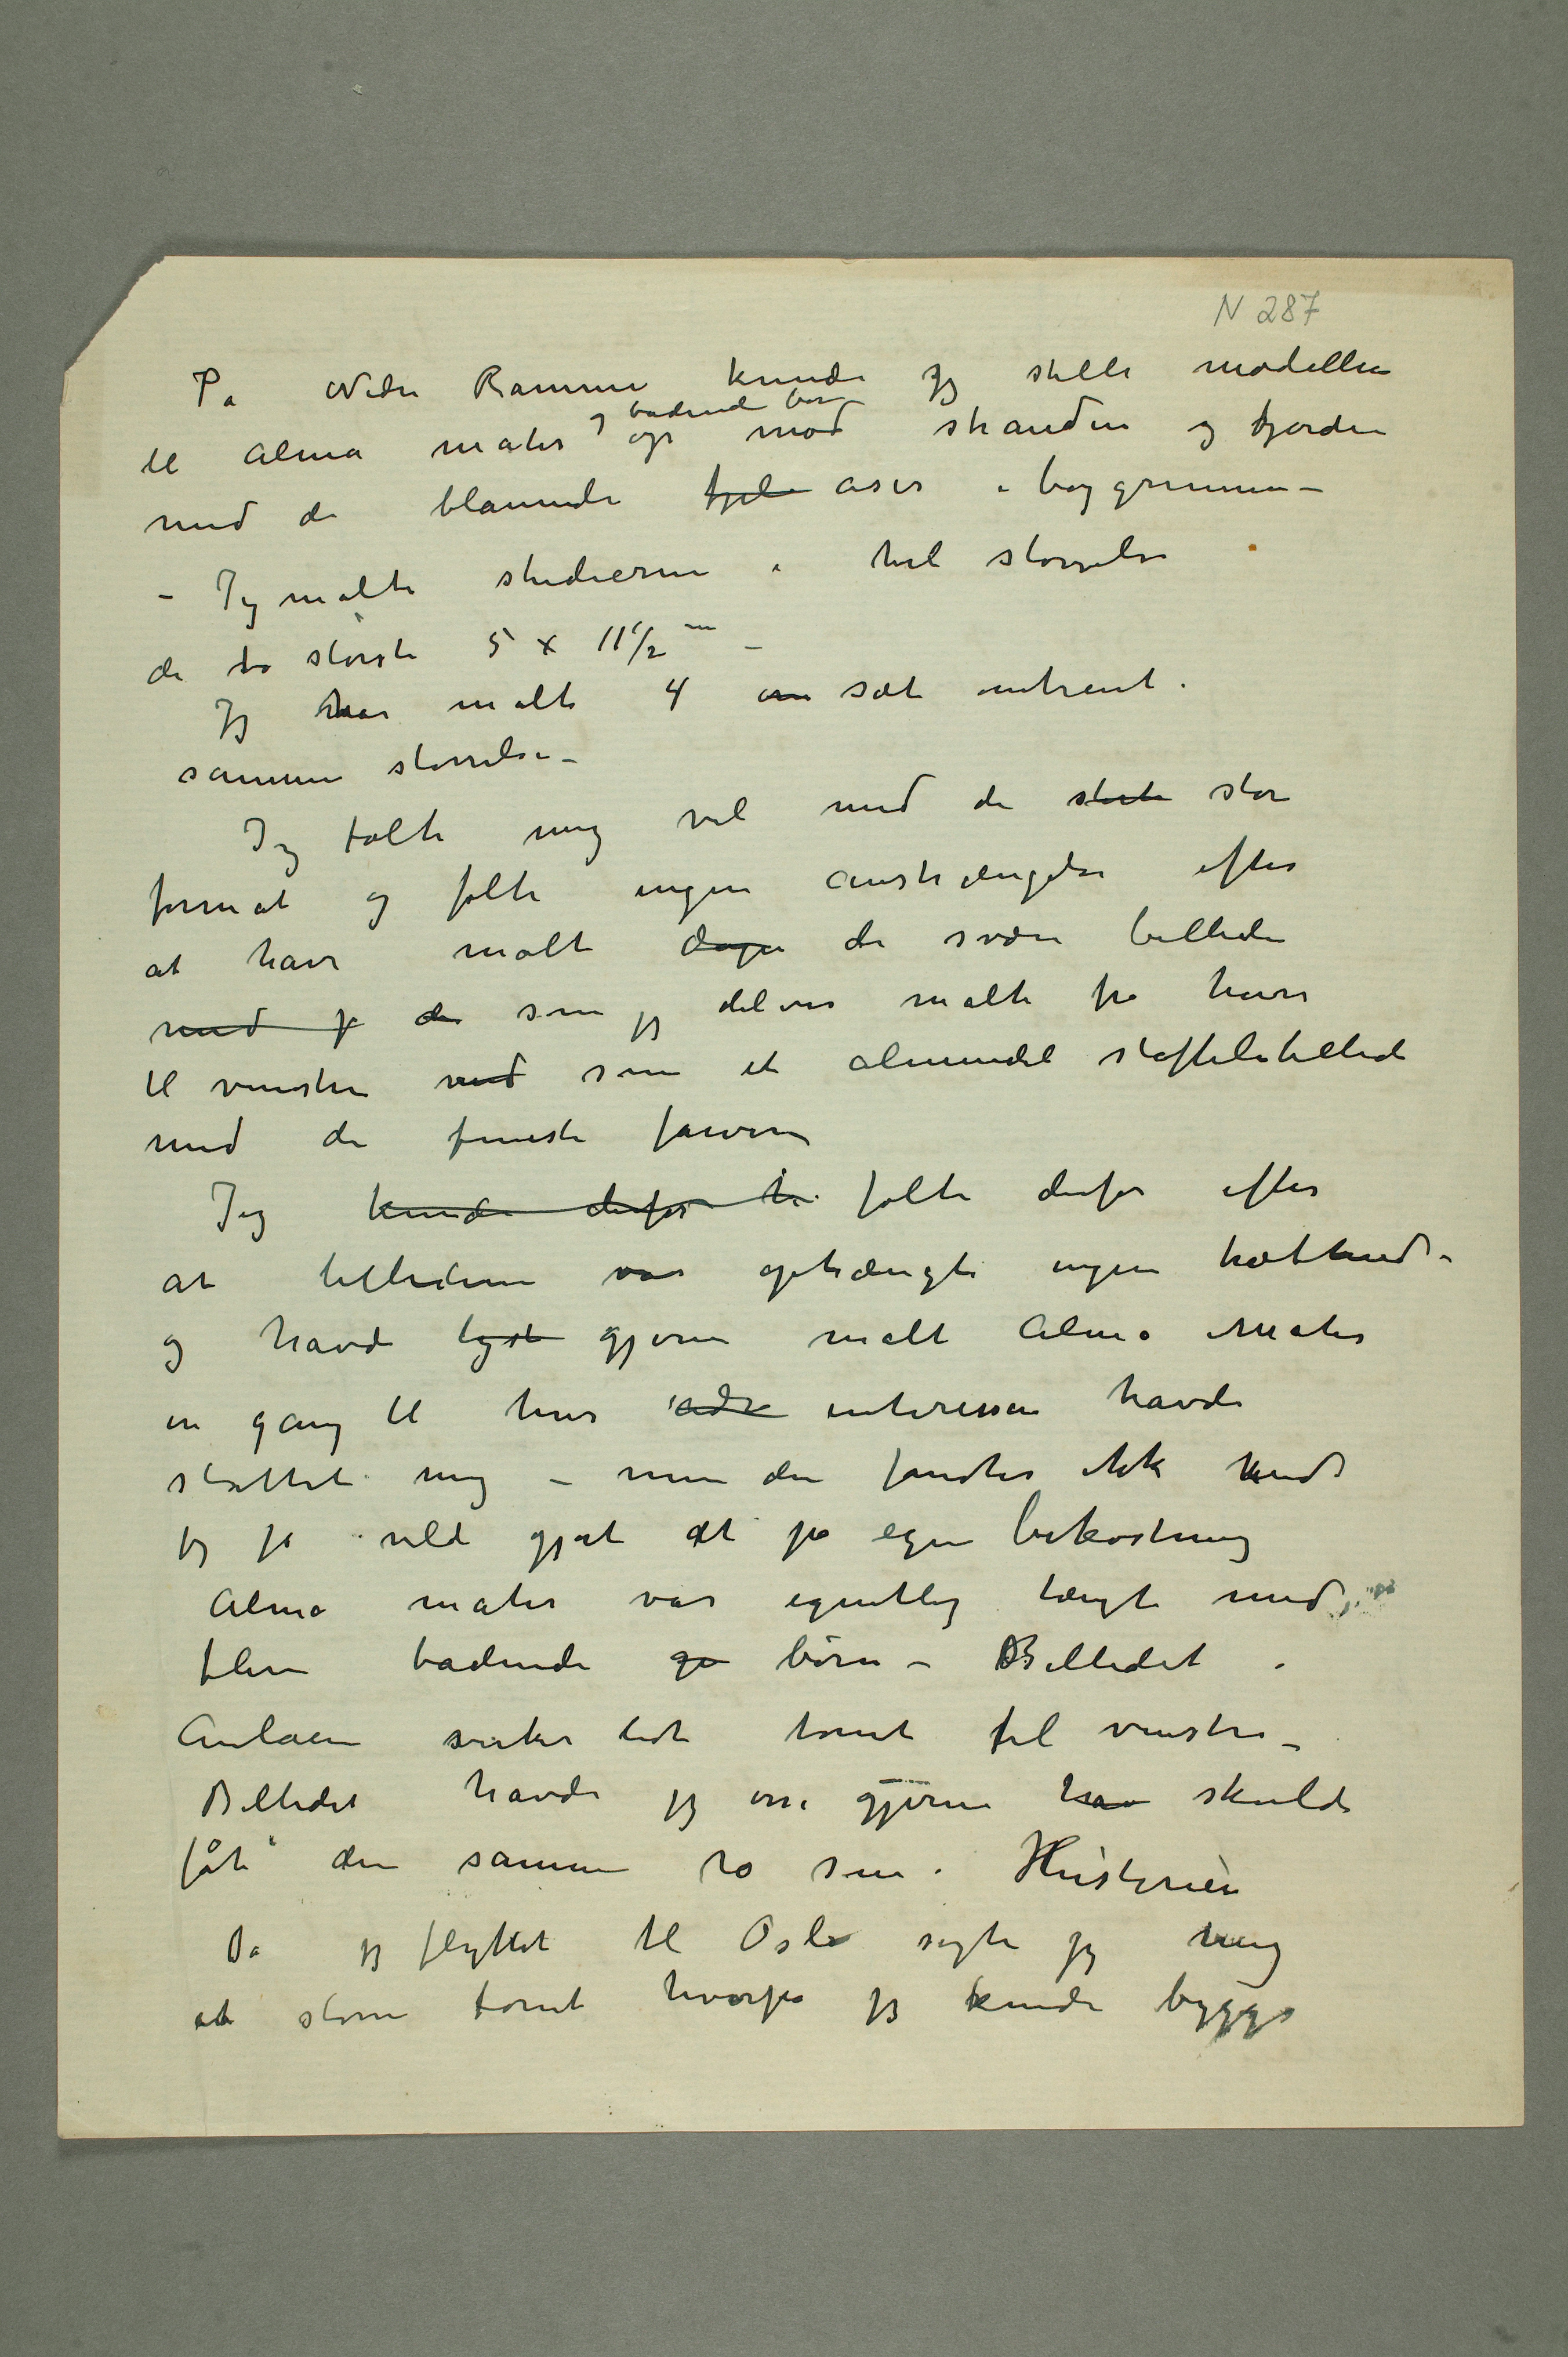 N 287
På Nedre Ramme kunde jeg stille modellen
og badende børn
til Alma mater op mod stranden og fjorden
med de blaanende fjel aser i baggrunnen –
– Jeg malte studierne i hel størrelse
de to største 5 x 11 1/2 m –
Jeg har malt 4 om sæt omtrent
samme størrelse –
Jeg følte mig vel med de storte store
format og følte ingen anstrængelse efter
at have malt dage de svære billeder
med j de som jeg delvis malte fra høire
til venstre med som et almindeli staffelibillede
med de fineste farver
Jeg kunde derfor h følte derfor efter
at billederne var ophængte ingen træthed –
og havde lyst gjerne malt Alma Mater
en gang til hvis adr interessen havde
støttet mig – men den fandtes ikke uden
jeg få vilde gjort det på egen bekostning
Alma mater var egentlig tængt med
flere badende gu børn – Billedet i
Aulaen virker lidt tomt til venstre –
Billedet havde jeg osså gjerne hav skulde
fåt den samme ro som i Historien
Da jeg flyttet til Oslo søgte jeg mig
et større tomt hvorpå jeg kunde bygge